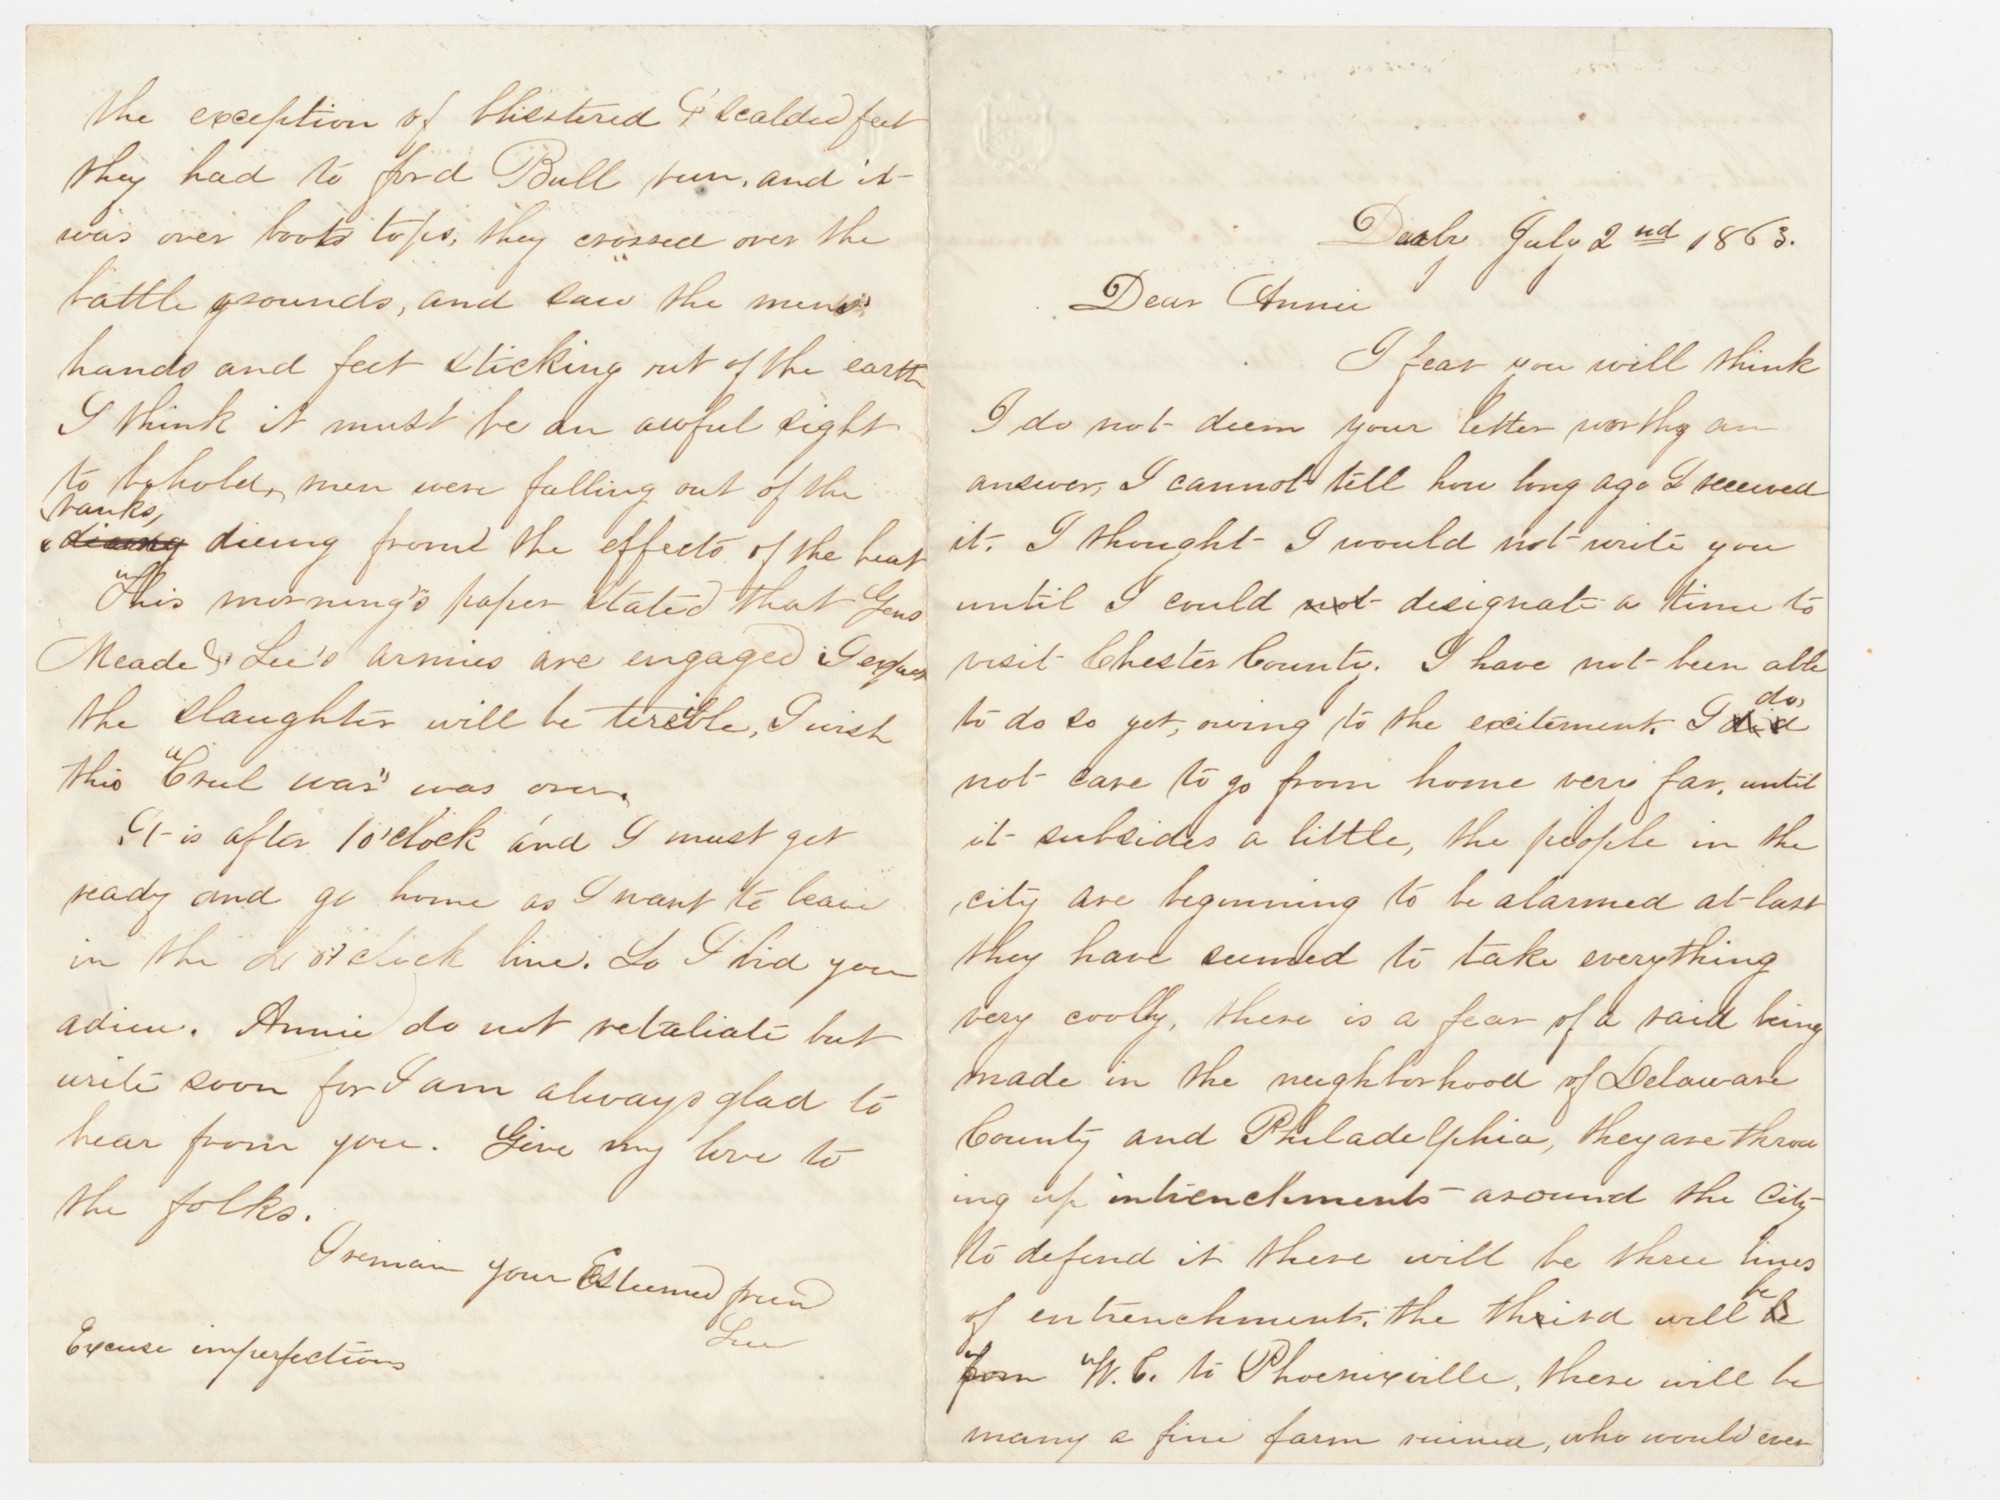 Darby July 2nd 1863.
Dear Annie
I fear you will think
I do not deem your letter worthy an
answer, I cannot tell how long ago I received
it. I thought I would not write you
until I could not designate a time to
visit Chester County. I have not been able
to do so yet, owing to the excitement. I did do,
not care to go from home very far, until
it subsides a little, the people in the
city are beginning to be alarmed at last
they have seemed to take everything
very coolly, there is a fear of a raid being
made in the neighborhood of Delaware
County and Philadelphia, they are throw
ing up intrenchments around the City
to defend it there will be three lines
of entrenchments, the third will be be
from "W. C. to Phoenixville, there will be
many a fine farm ruined, who would ever
the exception of blisstered & scalded feet
they had to ford Bull run, and it
was over boots tops, they crossed over the
battle grounds, and saw the mens
hands and feet sticking out of the earth
I think it must be an awful sight
to behold, men were falling out of the
ranks,
dieing from the effects of the heat
This morning's paper stated that Gens
Meade & Lee's armies are engaged I expect
the slaughter will be terrible, I wish
this "Cruel war" was over.
It is after 1 o'clock and I must get
ready and go home as I want to leave
in the o'clock line. So I bid you
adieu. Annie do not retaliate but
write soon for I am always glad to
hear from you. Give my love to
the folks.
I remain your Esteemed friend
Lue
Excuse imperfections